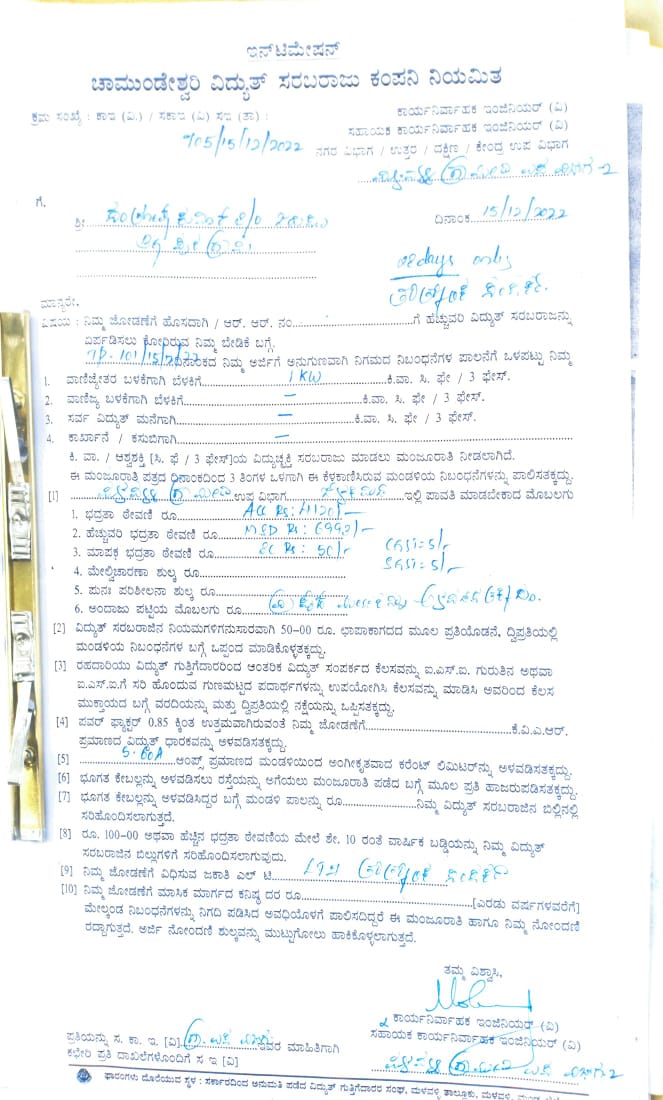 ಇನ್‌ಟಿಮೇಷನ್
ಚಾಮುಂಡೇಶ್ವರಿ ವಿದ್ಯುತ್ ಸರಬರಾಜು ಕಂಪನಿ ನಿಯಮಿತ
ಕ್ರಮ ಸಂಖ್ಯೆ : ಕಾಇ (ವಿ.) / ಸಕಾಇ (ವಿ) ಸಇ (ತಾ) :
ಕಾರ್ಯನಿರ್ವಾಹಕ ಇಂಜಿನಿಯರ್ (ವಿ)
ಸಹಾಯಕ ಕಾರ್ಯನಿರ್ವಾಹಕ ಇಂಜಿನಿಯರ್ (ವಿ)
705/15/12/2022 ನಗರ ವಿಭಾಗ / ಉತ್ತರ / ದಕ್ಷಿಣ / ಕೇಂದ್ರ ಉಪ ವಿಭಾಗ
ಗೆ.
ಶ್ರೀ
ದಿನಾಂಕ 15/12/2022
days only
ಮಾನ್ಯರೇ,
ವಿಷಯ : ನಿಮ್ಮ ಜೋಡಣೆಗೆ ಹೊಸದಾಗಿ / ಆರ್. ಆರ್. ನಂ. ಗೆ ಹೆಚ್ಚುವರಿ ವಿದ್ಯುತ್ ಸರಬರಾಜನ್ನು
ಏರ್ಪಡಿಸಲು ಕೋರಿರುವ ನಿಮ್ಮ ಬೇಡಿಕೆ ಬಗ್ಗೆ.
ದಿನಾಂಕದ ನಿಮ್ಮ ಅರ್ಜಿಗೆ ಅನುಗುಣವಾಗಿ ನಿಗಮದ ನಿಬಂಧನೆಗಳ ಪಾಲನೆಗೆ ಒಳಪಟ್ಟು ನಿಮ್ಮ
1. ವಾಣಿಜ್ಯೇತರ ಬಳಕೆಗಾಗಿ ಬೆಳಕಿಗೆ 1 KW ಕಿ.ವಾ. ಸಿ. ಫೇ / 3 ಫೇಸ್.
2. ವಾಣಿಜ್ಯ ಬಳಕೆಗಾಗಿ ಬೆಳಕಿಗೆ – ಕಿ.ವಾ. ಸಿ. ಫೇ / 3 ಫೇಸ್.
3. ಸರ್ವ ವಿದ್ಯುತ್ ಮನೆಗಾಗಿ – ಕಿ.ವಾ. ಸಿ. ಫೇ / 3 ಫೇಸ್.
4. ಕಾರ್ಖಾನೆ / ಕಸುಬಿಗಾಗಿ –
ಕಿ. ವಾ. / ಅಶ್ವಶಕ್ತಿ [ಸಿ. ಫೆ / 3 ಫೇಸ್]ಯ ವಿದ್ಯುಚ್ಛಕ್ತಿ ಸರಬರಾಜು ಮಾಡಲು ಮಂಜೂರಾತಿ ನೀಡಲಾಗಿದೆ.
ಈ ಮಂಜೂರಾತಿ ಪತ್ರದ ದಿನಾಂಕದಿಂದ 3 ತಿಂಗಳ ಒಳಗಾಗಿ ಈ ಕೆಳಕಾಣಿಸಿರುವ ಮಂಡಳಿಯ ನಿಬಂಧನೆಗಳನ್ನು ಪಾಲಿಸತಕ್ಕದ್ದು.
[1] ಉಪ ವಿಭಾಗ ಇಲ್ಲಿ ಪಾವತಿ ಮಾಡಬೇಕಾದ ಮೊಬಲಗು
1. ಭದ್ರತಾ ಠೇವಣಿ ರೂ. Acc Rs: 4120/-
2. ಹೆಚ್ಚುವರಿ ಭದ್ರತಾ ಠೇವಣಿ ರೂ. MSD Rs: 6992/-
3. ಮಾಪಕ ಭದ್ರತಾ ಠೇವಣಿ ರೂ. SC Rs: 50/- CGST: 5/-
4. ಮೇಲ್ವಿಚಾರಣಾ ಶುಲ್ಕ ರೂ. SGST: 5/-
5. ಪುನಃ ಪರಿಶೀಲನಾ ಶುಲ್ಕ ರೂ.
6. ಅಂದಾಜು ಪಟ್ಟಿಯ ಮೊಬಲಗು ರೂ.
[2] ವಿದ್ಯುತ್ ಸರಬರಾಜಿನ ನಿಯಮಗಳಿಗನುಸಾರವಾಗಿ 50-00 ರೂ. ಛಾಪಾಕಾಗದದ ಮೂಲ ಪ್ರತಿಯೊಡನೆ, ದ್ವಿಪ್ರತಿಯಲ್ಲಿ
ಮಂಡಳಿಯ ನಿಬಂಧನೆಗಳ ಬಗ್ಗೆ ಒಪ್ಪಂದ ಮಾಡಿಕೊಳ್ಳತಕ್ಕದ್ದು.
[3] ರಹದಾರಿಯು ವಿದ್ಯುತ್ ಗುತ್ತಿಗೆದಾರರಿಂದ ಆಂತರಿಕ ವಿದ್ಯುತ್ ಸಂಪರ್ಕದ ಕೆಲಸವನ್ನು ಐ.ಎಸ್.ಐ. ಗುರುತಿನ ಅಥವಾ
ಐ.ಎಸ್.ಐ.ಗೆ ಸರಿ ಹೊಂದುವ ಗುಣಮಟ್ಟದ ಪದಾರ್ಥಗಳನ್ನು ಉಪಯೋಗಿಸಿ ಕೆಲಸವನ್ನು ಮಾಡಿಸಿ ಅವರಿಂದ ಕೆಲಸ
ಮುಕ್ತಾಯದ ಬಗ್ಗೆ ವರದಿಯನ್ನು ಮತ್ತು ದ್ವಿಪ್ರತಿಯಲ್ಲಿ ನಕ್ಷೆಯನ್ನು ಒಪ್ಪಿಸತಕ್ಕದ್ದು.
[4] ಪವರ್ ಫ್ಯಾಕ್ಟರ್ 0.85 ಕ್ಕಿಂತ ಉತ್ತಮವಾಗಿರುವಂತೆ ನಿಮ್ಮ ಜೋಡಣೆಗೆ ಕೆ.ವಿ.ಎ.ಆರ್.
ಪ್ರಮಾಣದ ವಿದ್ಯುತ್ ಧಾರಕವನ್ನು ಅಳವಡಿಸತಕ್ಕದ್ದು.
[5] 5-60A ಆಂಪ್ಸ್ ಪ್ರಮಾಣದ ಮಂಡಳಿಯಿಂದ ಅಂಗೀಕೃತವಾದ ಕರೆಂಟ್ ಲಿಮಿಟರ್‌ನ್ನು ಅಳವಡಿಸತಕ್ಕದ್ದು.
[6] ಭೂಗತ ಕೇಬಲ್ಲನ್ನು ಅಳವಡಿಸಲು ರಸ್ತೆಯನ್ನು ಅಗೆಯಲು ಮಂಜೂರಾತಿ ಪಡೆದ ಬಗ್ಗೆ ಮೂಲ ಪ್ರತಿ ಹಾಜರುಪಡಿಸತಕ್ಕದ್ದು.
[7] ಭೂಗತ ಕೇಬಲ್ಲನ್ನು ಅಳವಡಿಸಿದ್ದರ ಬಗ್ಗೆ ಮಂಡಳಿ ಪಾಲನ್ನು ರೂ. ನಿಮ್ಮ ವಿದ್ಯುತ್ ಸರಬರಾಜಿನ ಬಿಲ್ಲಿನಲ್ಲಿ
ಸರಿಹೊಂದಿಸಲಾಗುತ್ತದೆ.
[8] ರೂ. 100-00 ಅಥವಾ ಹೆಚ್ಚಿನ ಭದ್ರತಾ ಠೇವಣಿಯ ಮೇಲೆ ಶೇ. 10 ರಂತೆ ವಾರ್ಷಿಕ ಬಡ್ಡಿಯನ್ನು ನಿಮ್ಮ ವಿದ್ಯುತ್
ಸರಬರಾಜಿನ ಬಿಲ್ಲುಗಳಿಗೆ ಸರಿಹೊಂದಿಸಲಾಗುವುದು.
[9] ನಿಮ್ಮ ಜೋಡಣೆಗೆ ವಿಧಿಸುವ ಜಕಾತಿ ಎಲ್ ಟಿ
[10] ನಿಮ್ಮ ಜೋಡಣೆಗೆ ಮಾಸಿಕ ಮಾರ್ಗದ ಕನಿಷ್ಠ ದರ ರೂ. [ಎರಡು ವರ್ಷಗಳವರೆಗೆ]
ಮೇಲ್ಕಂಡ ನಿಬಂಧನೆಗಳನ್ನು ನಿಗದಿ ಪಡಿಸಿದ ಅವಧಿಯೊಳಗೆ ಪಾಲಿಸದಿದ್ದರೆ ಈ ಮಂಜೂರಾತಿ ಹಾಗೂ ನಿಮ್ಮ ನೋಂದಣಿ
ರದ್ದಾಗುತ್ತದೆ. ಅರ್ಜಿ ನೋಂದಣಿ ಶುಲ್ಕವನ್ನು ಮುಟ್ಟುಗೋಲು ಹಾಕಿಕೊಳ್ಳಲಾಗುತ್ತದೆ.
ತಮ್ಮ ವಿಶ್ವಾಸಿ,
ಕಾರ್ಯನಿರ್ವಾಹಕ ಇಂಜಿನಿಯರ್ (ವಿ)
ಸಹಾಯಕ ಕಾರ್ಯನಿರ್ವಾಹಕ ಇಂಜಿನಿಯರ್ (ವಿ)
ಪ್ರತಿಯನ್ನು ಸ. ಕಾ. ಇ. [ವಿ] ರವರ ಮಾಹಿತಿಗಾಗಿ
ಕಛೇರಿ ಪ್ರತಿ ದಾಖಲೆಗಳೊಂದಿಗೆ ಸ ಇ [ವಿ]
ಫಾರಂಗಳು ದೊರೆಯುವ ಸ್ಥಳ : ಸರ್ಕಾರದಿಂದ ಅನುಮತಿ ಪಡೆದ ವಿದ್ಯುತ್ ಗುತ್ತಿಗೆದಾರರ ಸಂಘ, ಮಳವಳ್ಳಿ ತಾಲ್ಲೂಕು, ಮಳವಳ್ಳಿ,